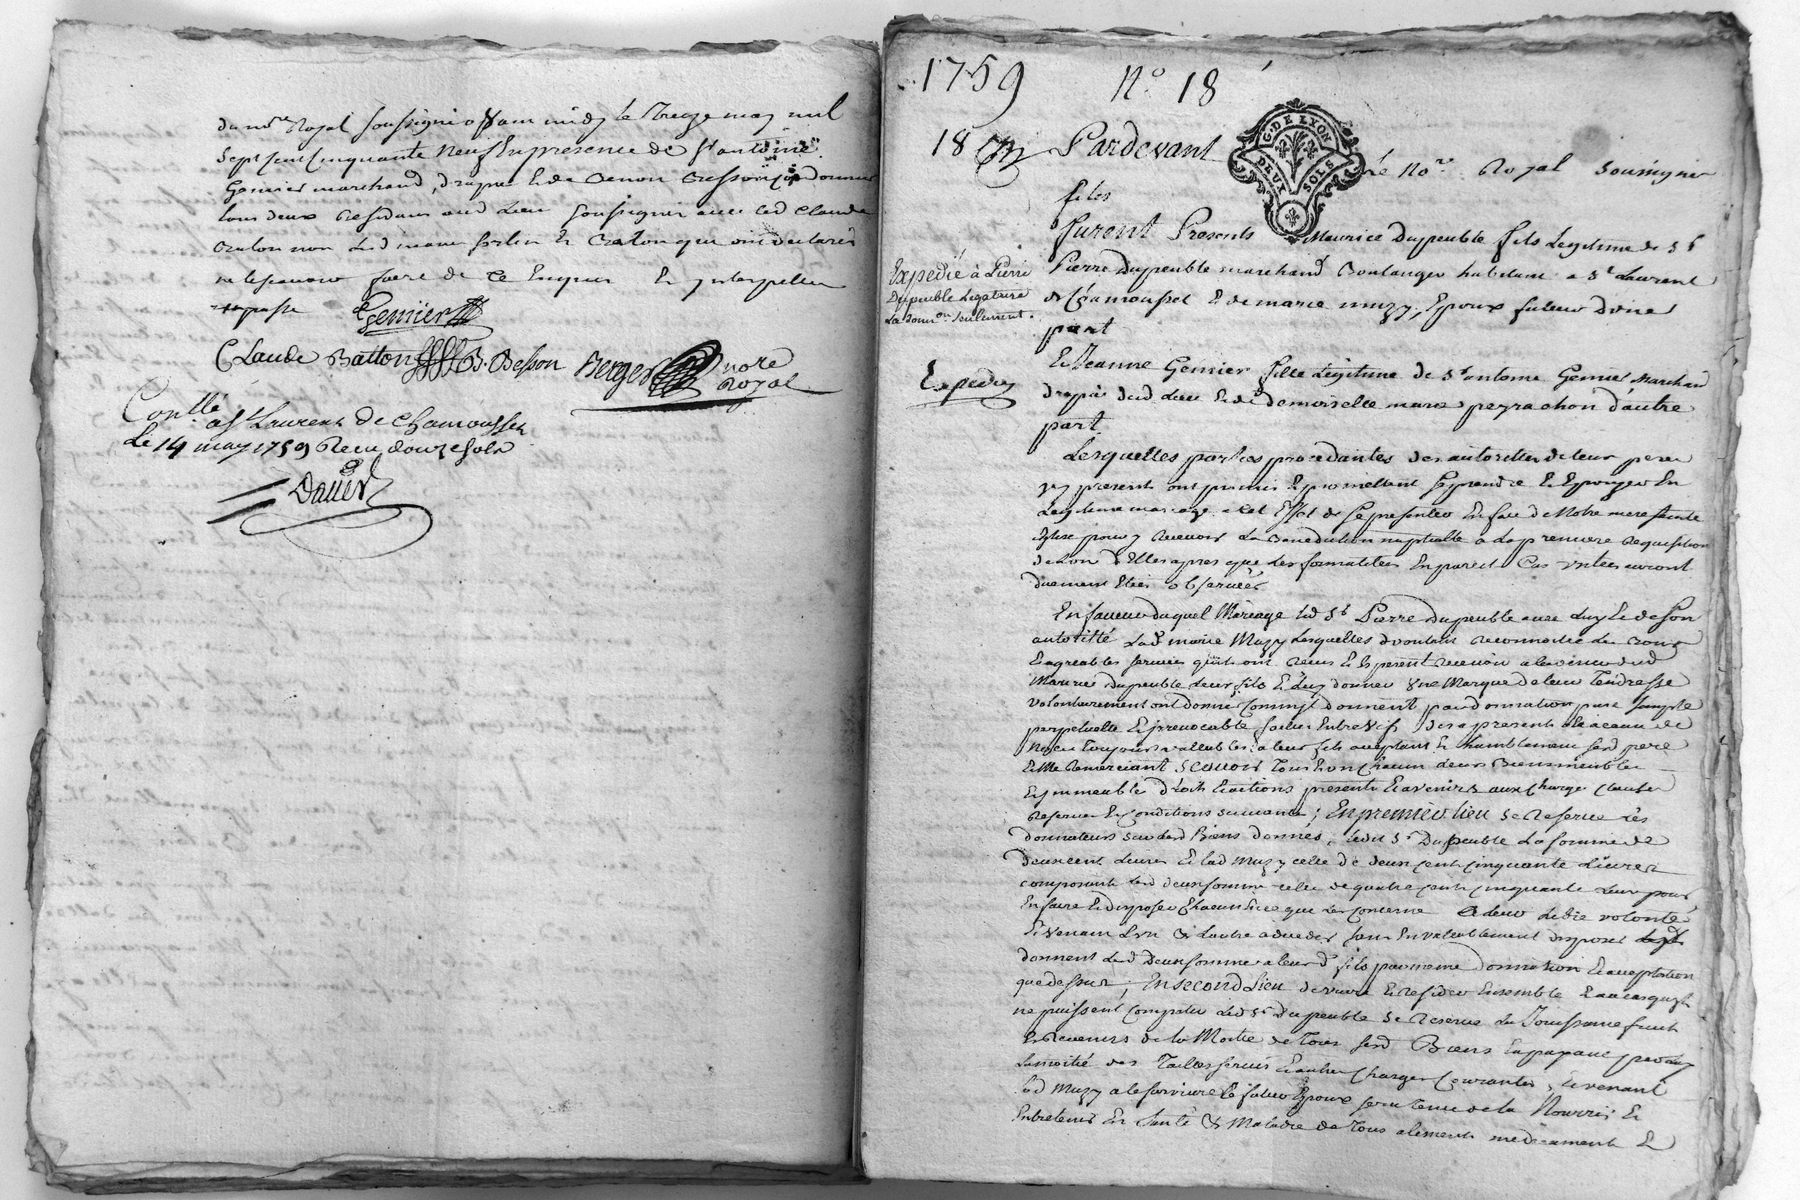 du no.re Royal soussigné avant midy le treize may mil
sept cent cinquante neuf en presence de S.r antoine
Genier marchand drapier
tous deux Residans aud Lieu soussignés avec led Claude
de ce Enquis Et interpellés
Genier
Claude Batton B. Besson Berger nore
Royal
Con.llé
a St Laurent de Chamousset
Le 14 may 1759 Recu douze sols
Daviet
1759 N.o 18
18 Pardevant Le No.re Royal soussigné
G. DE LYON
DEUX SOLS
fils
Furent Presents Maurice Dupeuble fils Legitime de S.r
Pierre Dupeuble marchand Boulanger habitant a S.t Laurent
de Chamousset Et de marie muzy, Epoux futeur d'une
part
Expedié à Pierre
Dupeuble Legataire
La donn.on seulement.
Expedié
Et Jeanne Genier fille Legitime de S.r antoine Genier Marchand
drapier dud Lieu Et de demoiselle marie peyrachon d'autre
part.
Lesquelles parties procedantes des autorittes de leur peres
icy presents ont promis Et promettent se prendre Et Epouzer En
Legitime mariage a cet Effet de se presenter En face de Notre mere sainte
Eglise pour y Recevoir La Benediction nuptialle a La premiere Requisition
de Lun d'Elles apres que les formalittes En pareil Cas uzitees auront
duement Etées observées
En faveur duquel Mariage led S.r Pierre Dupeuble avec Luy Et de son
autoritté Lad.e marie Muzy Lesquelles voulant reconnoitre Les bons
Et agreables services qu'ils ont Recus Et Esperent Recevoir a l'avenir dud
Maurice Dupeuble Leur fils Et Luy donner Une Marque de leur Tendresse
volontairement ont donné comme ils donnent par donnation pure simple
perpetuelle Et irrevocable faitte Entre Vifs des a present Et a cause de
Noces Toujours vallable a leur fils acceptant Et humblement sesd pere
Et Mere Remerciant scavoir Tous Et un Chacun Leurs Biens meubles
Et immeubles droits Et actions presents Et avenirs aux Charges Clauses
Reserves Et Conditions suivantes; En premier lieu se Reserve Les
donnateurs sur lesd Biens donnés, ledit S.r Dupeuble La somme de
deux cent Livres Et lad Muzy celle de deux cent cinquante Livres
composants lesd deux sommes celle de quatre cents cinquante Livres pour
En faire Et disposer Chacun En ce que Les Concerne a leur dite volonté
Et Venant L'un ou L'autre a deceder sans En valablement disposer
donnent Lesd Deux sommes a leurd fils par meme Donnation Et acceptation
que dessus; En second Lieu de vivre Et Resider Ensemble Et au cas qu'ils
ne puissent Compatir Led S.r Dupeuble se Reserve La Jouissance fruits
Et Revenus de la Moitie de Tous sesd Biens En payant par luy
La moitié des Tailles servis Et autres Charges Courantes, Et venant
Lad Muzy a le survivre Le futeur Epoux sera tenu de la Nourrir Et
Entretenir En Santé & Maladie de Tous aliments medicaments Et